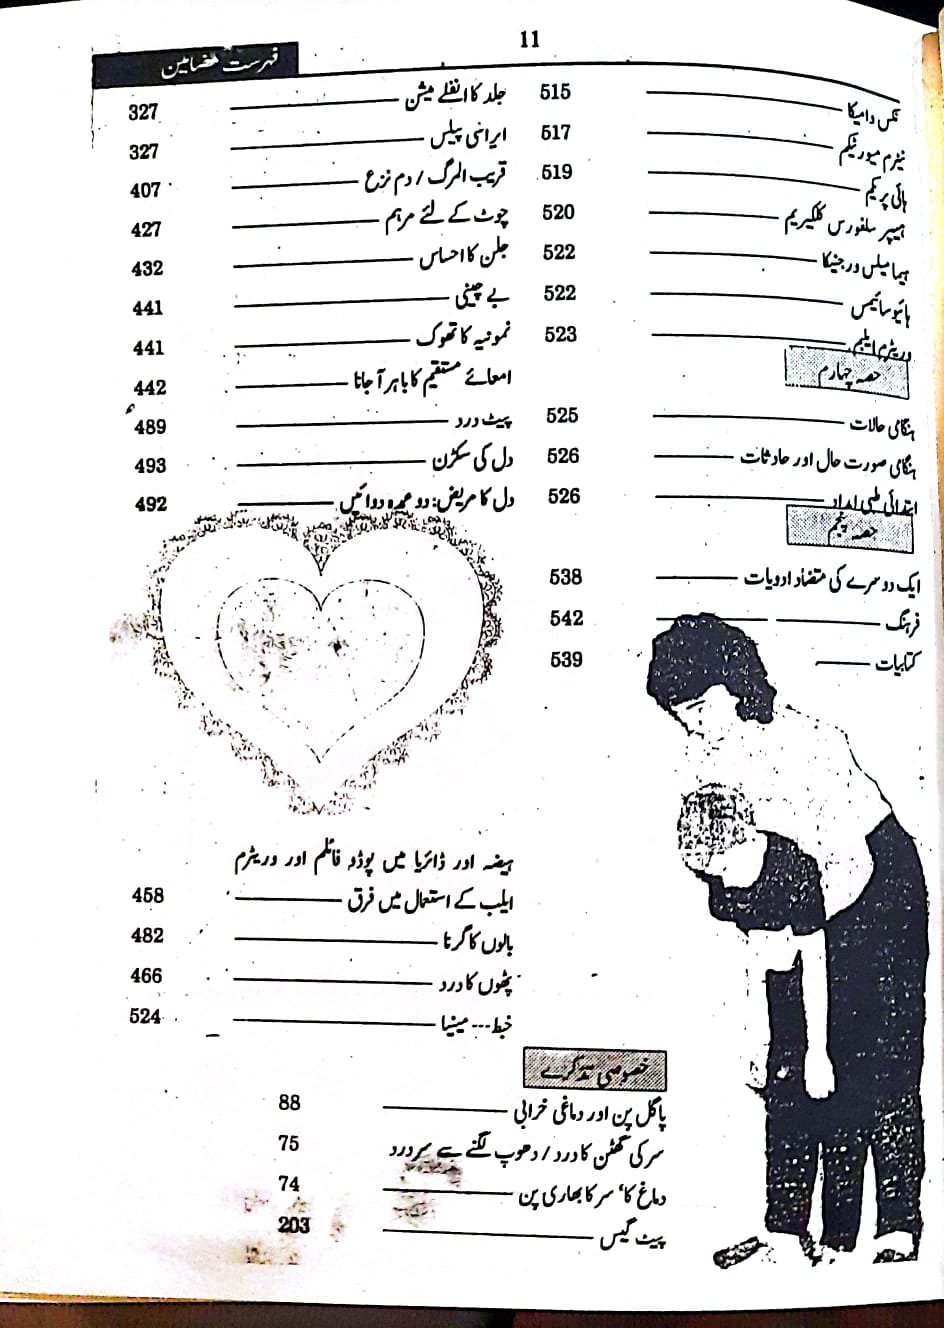 11
فہرست مضامین
نکس وامیکا 515
نیٹرم میورٹیکم 517
ہائی پریکم 519
ہیپر سلفورس کلکیریم 520
ہیمامیلس ورجنیکا 522
ہائیوسائیمس 522
وریٹرم ایلبم 523
حصہ چہارم
ہنگامی حالات 525
ہنگامی صورت حال اور حادثات 526
ابتدائی طبی امداد 526
حصہ پنجم
ایک دوسرے کی متضاد ادویات 538
فرہنگ 542
کتابیات 539
جلد کا انفلے میشن 327
ایرانی پیلس 327
قریب المرگ / دم نزع 407
چوٹ کے لئے مرہم 427
جلن کا احساس 432
بے چینی 441
نمونیہ کا تھوک 441
امعائے مستقیم کا باہر آ جانا 442
پیٹ درد 489
دل کی سکڑن 493
دل کا مریض: دو عمدہ دوائیں 492
ہیضہ اور ڈائریا میں پوڈو فائلم اور وریٹرم
ایلب کے استعمال میں فرق 458
بالوں کا گرنا 482
پٹھوں کا درد 466
خبط --- مینیا 524
خصوصی تذکرے
پاگل پن اور دماغی خرابی 88
سر کی گھٹن کا درد / دھوپ لگنے سے سر درد 75
دماغ کا، سر کا بھاری پن 74
پیٹ گیس 203